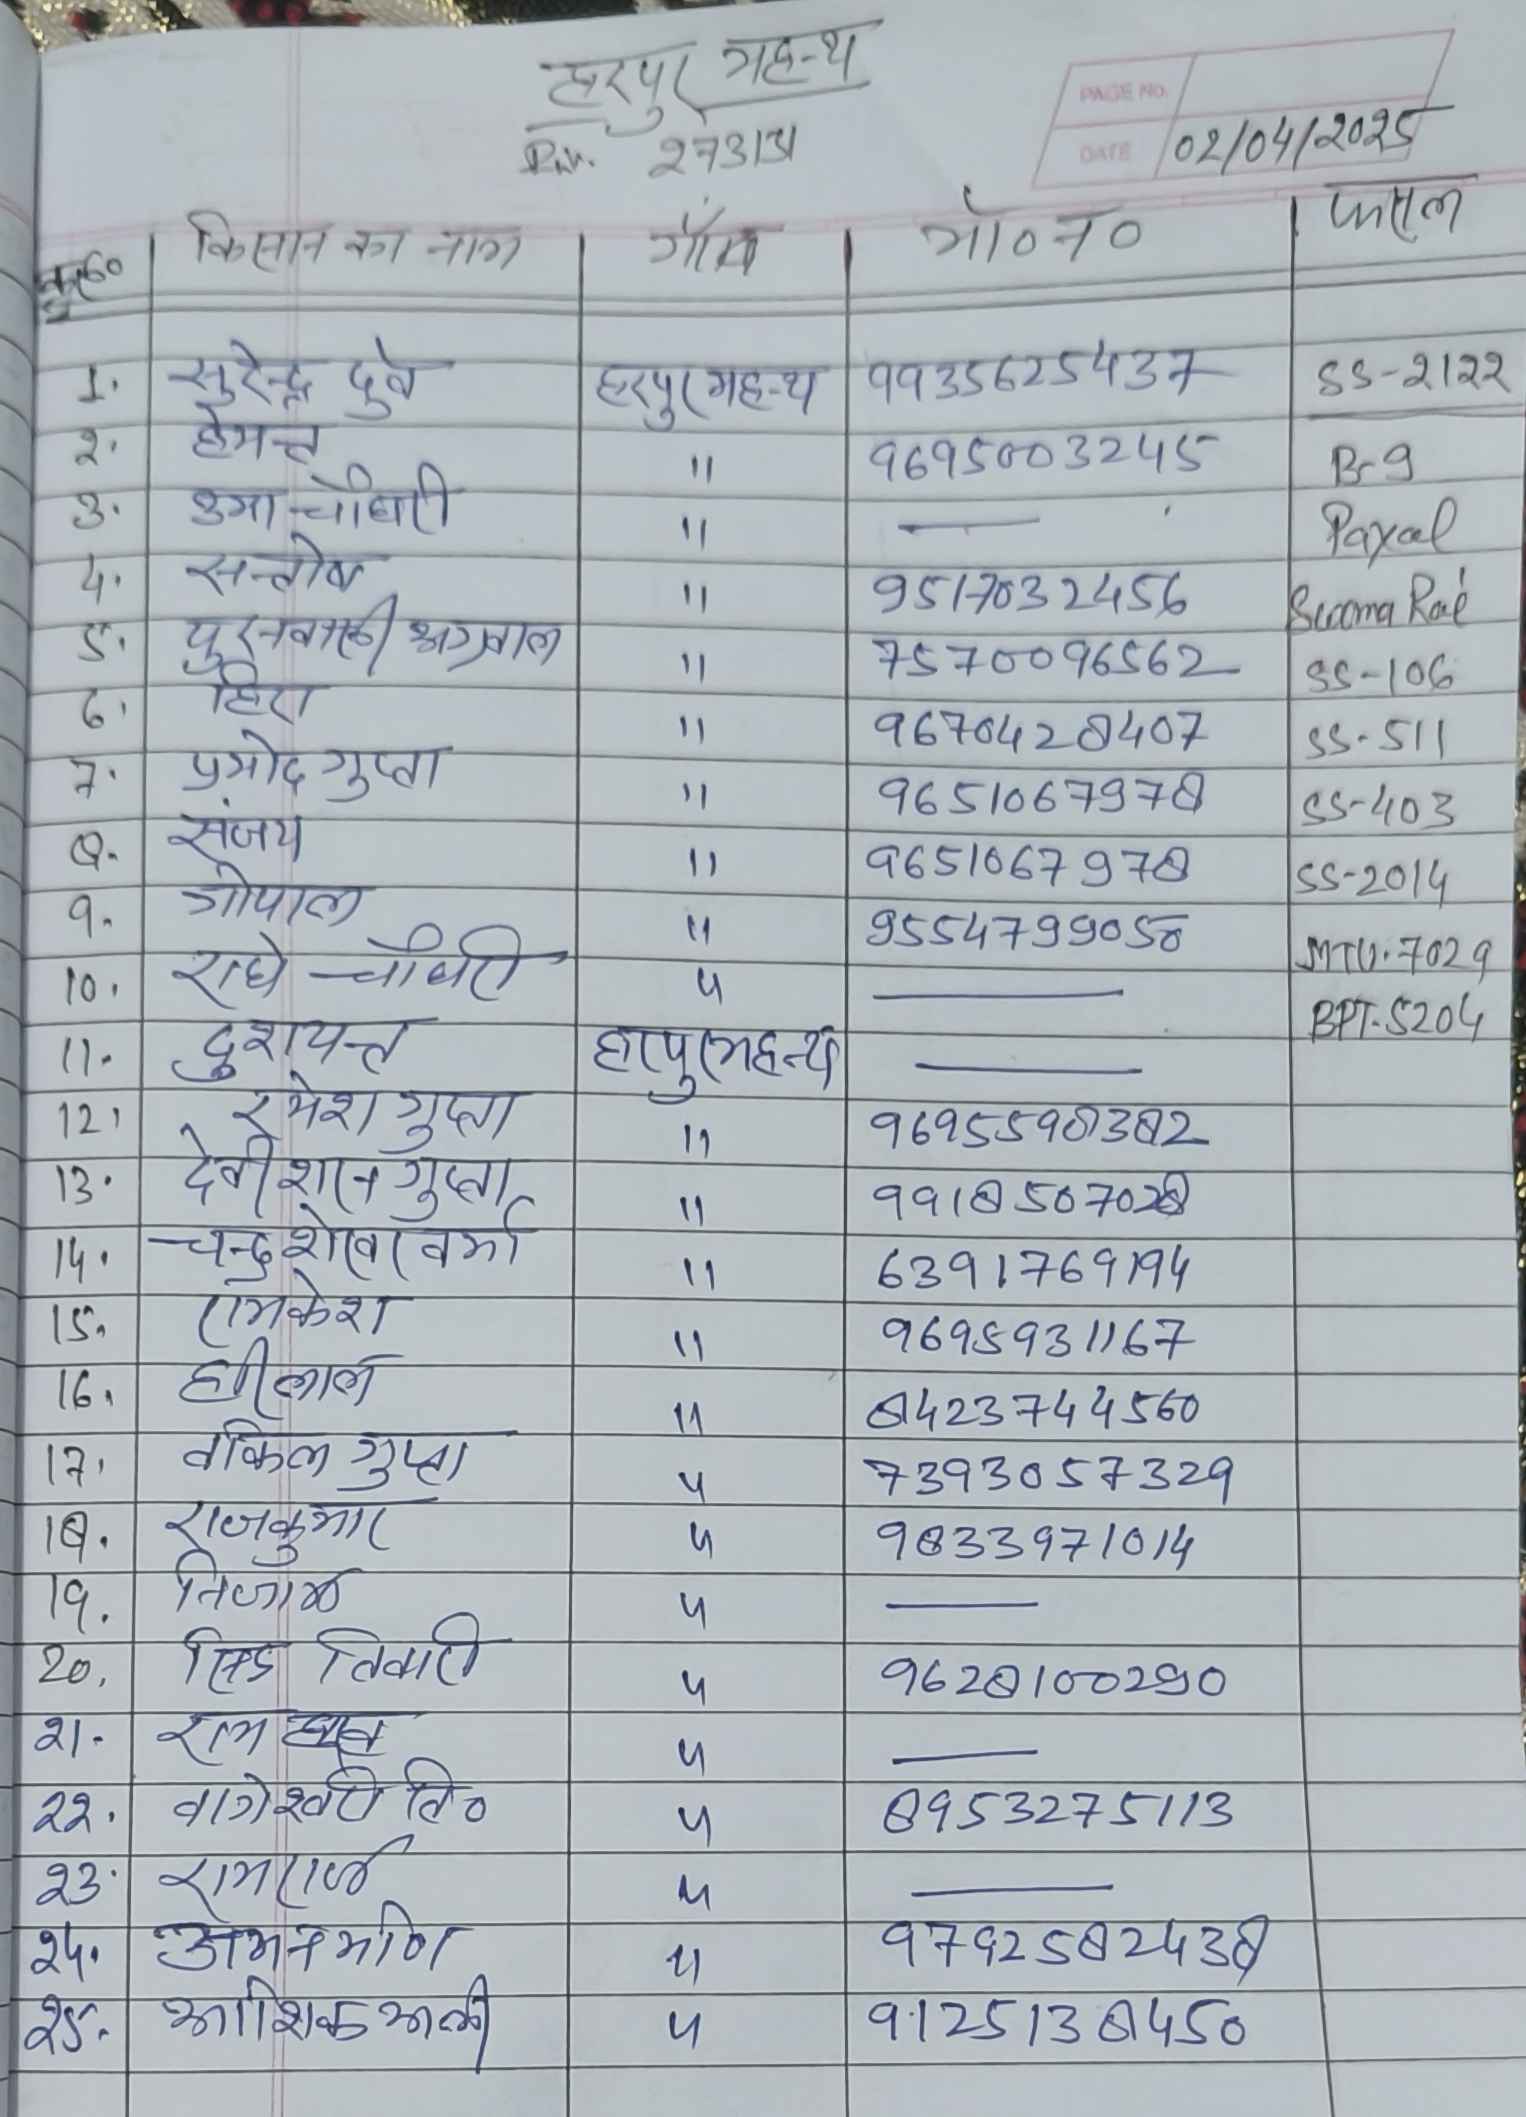 हरपुर महन्थ
Pin. 273131
PAGE NO.
DATE 02/04/2025
क्र०सं० किसान का नाम गाँव मो० न० फसल
1. सुरेन्द्र दुबे हरपुर महन्थ 9935625437 SS-2122
2. हेमन्त " 9695003245 B-9
3. उमा चौधरी " — Payal
4. सन्तोष " 9517032456 Sooma Rai
5. पुरनवासी अग्रवाल " 7570096562 SS-106
6. हिरा " 9670428407 SS-511
7. प्रमोद गुप्ता " 9651067978 SS-403
8. संजय " 9651067978 SS-2014
9. गोपाल " 9554799058 MTU-7029
10. राधे चौधरी " — BPT-5204
11. दुशयन्त हरपुर महन्थ —
12. रमेश गुप्ता " 9695598382
13. देवी शरन गुप्ता " 9918507028
14. चन्द्र शेखर वर्मा " 6391769194
15. रामकेश " 9695931167
16. हरीलाल " 8423744560
17. वकिल गुप्ता " 7393057329
18. राजकुमार " 9833971014
19. निजाम " —
20. तिवारी " 9628100290
21. राम " —
22. वागेश्वरी ति० " 8953275113
23. रामराज " —
24. अमन मणि " 9792582438
25. आशिक अली " 9125138450